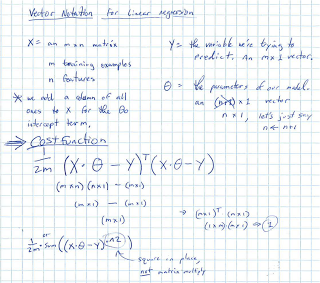 Vector Notation for Linear regression
X = an m x n matrix
m training examples
n features
* we add a column of all
ones to X for the θ0
intercept term.
Y = the variable we're trying to
predict. An m x 1 vector.
θ = the parameters of our model.
an (n+1) x 1 vector
n x 1, let's just say
n ← n+1
⇒ Cost Function
1/2m (X · θ - Y)ᵀ (X · θ - Y)
(m x n) (n x 1) - (m x 1)
(m x 1) - (m x 1)
(m x 1)
→ (m x 1)ᵀ (m x 1)
(1 x m) · (m x 1) → 1
or
1/2m · Sum ((X · θ - Y) .^2)
square in place,
not matrix multiply